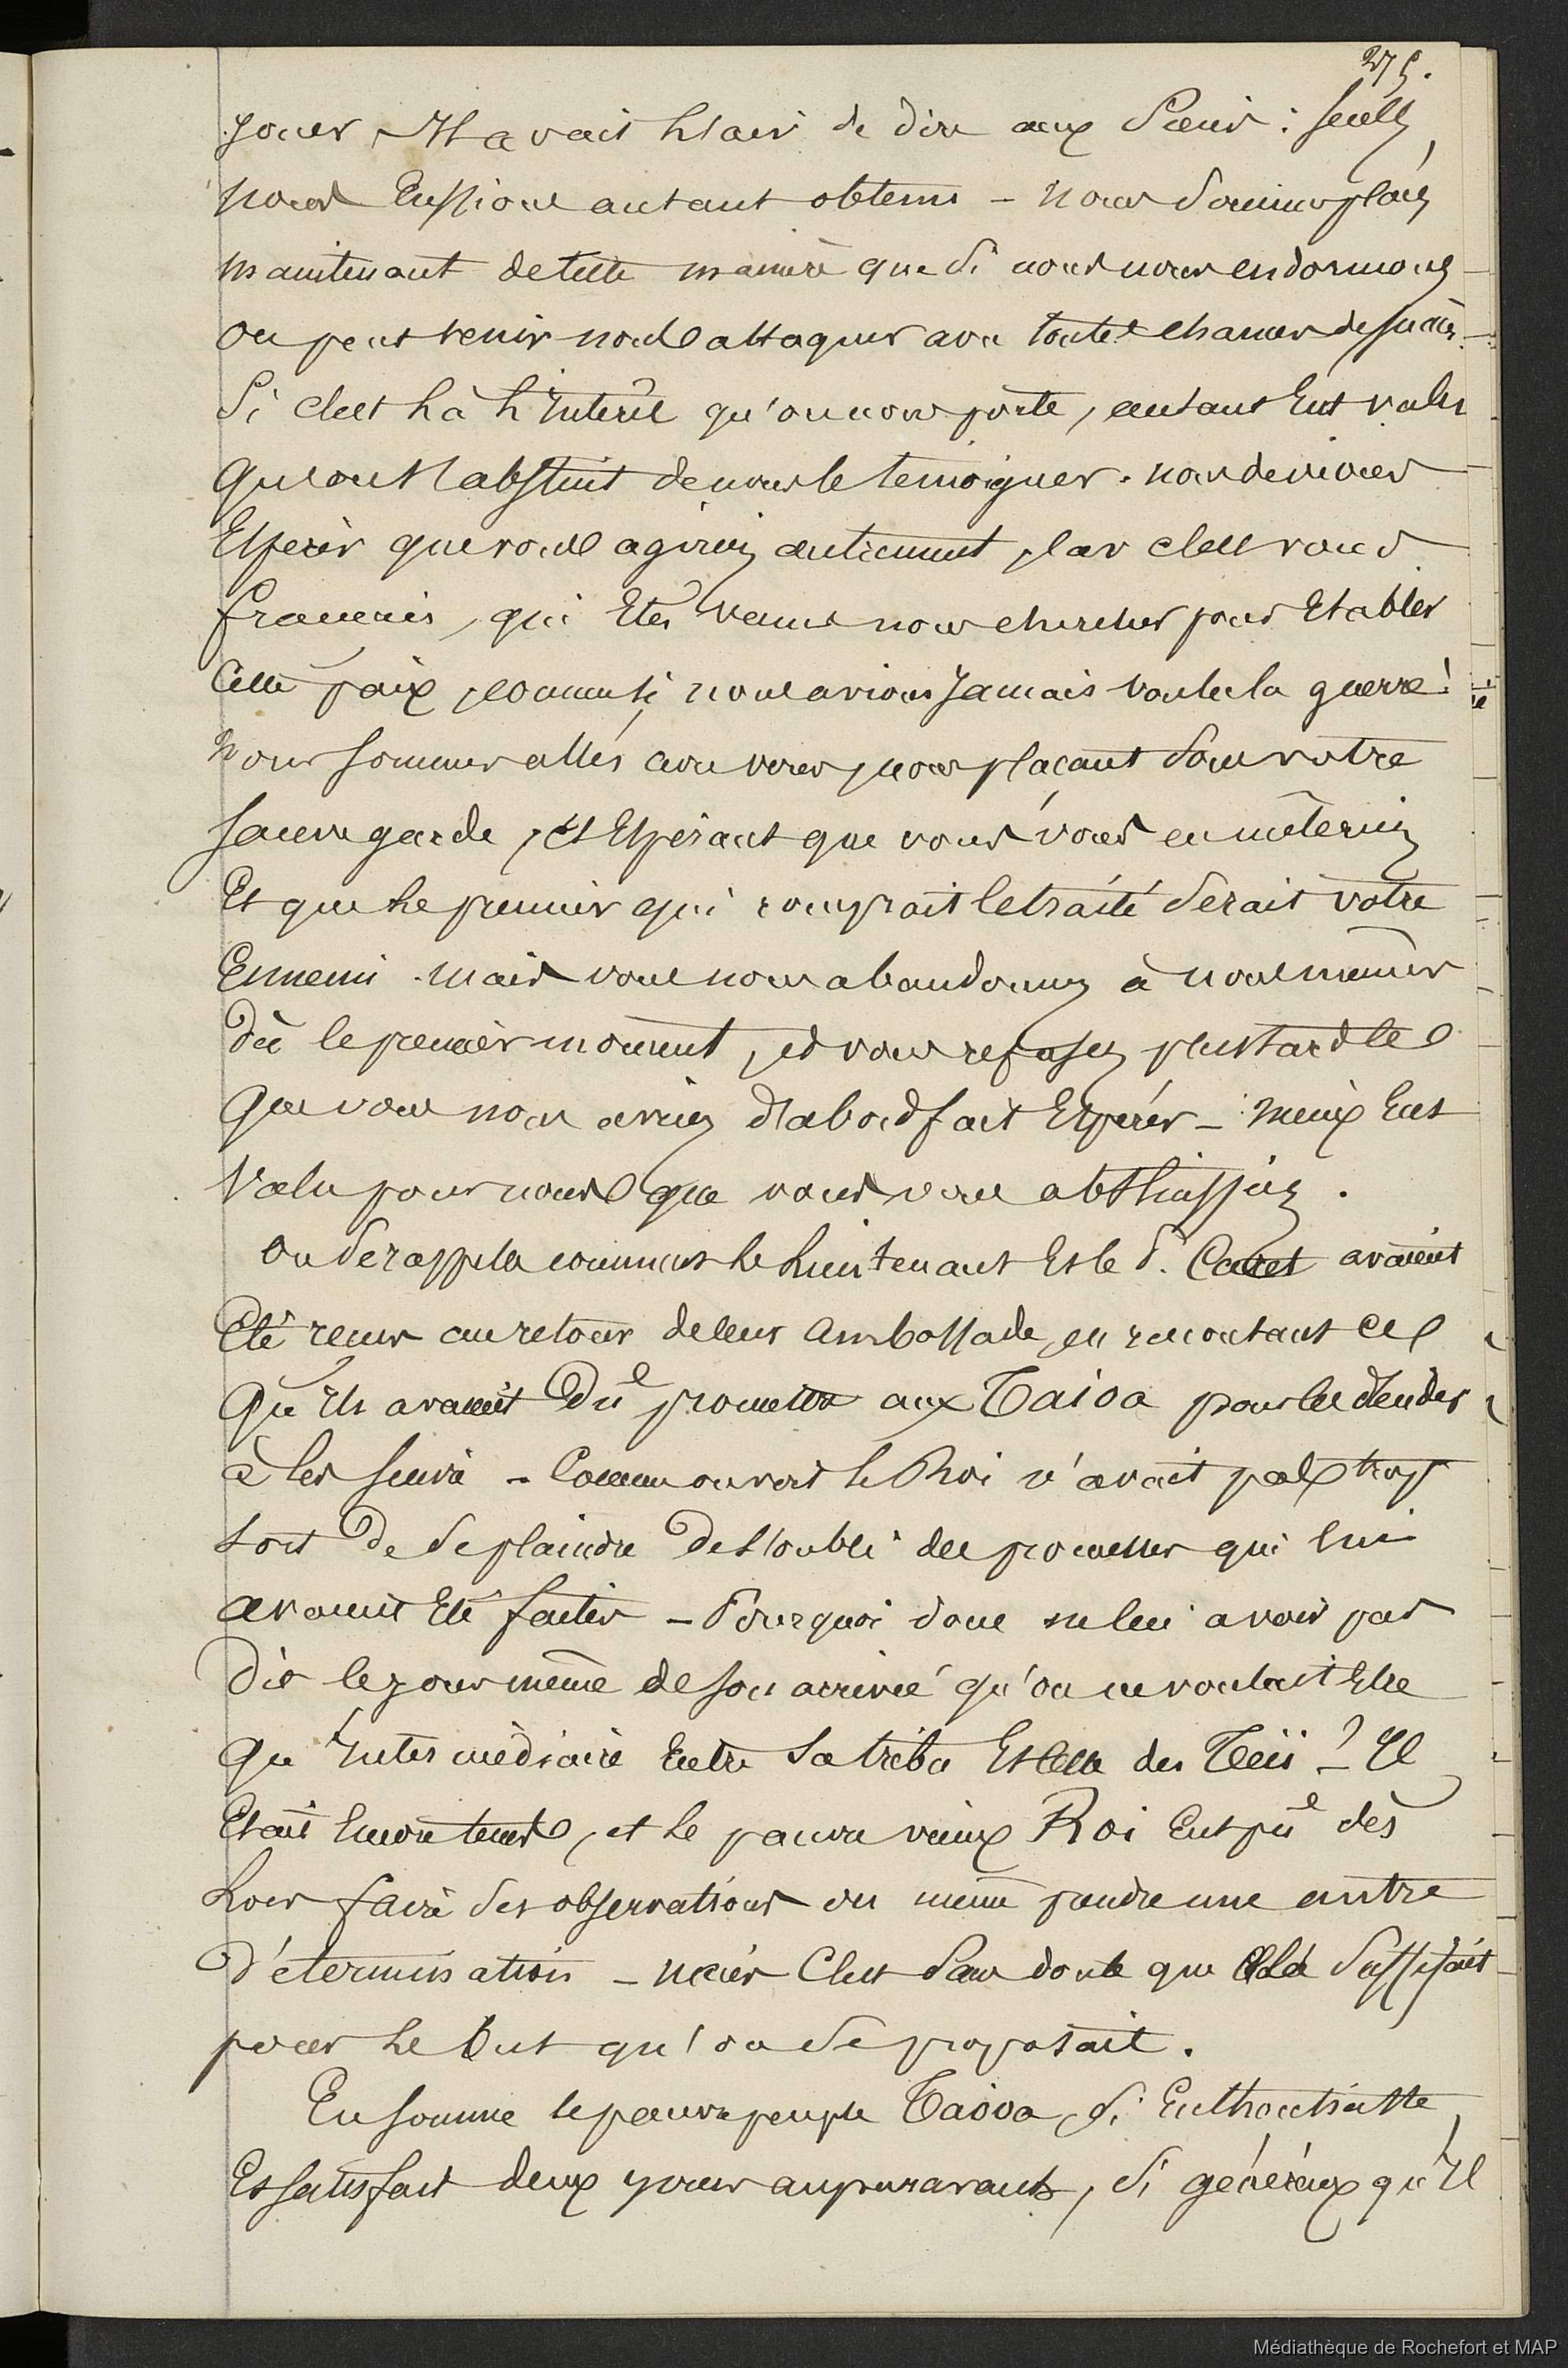 275.
jouer, Il avait l'air de dire aux Siens : seuls,
nous Eussions autant obtenu – nous sommes placés
maintenant de telle manière que si nous nous endormons
on peut venir nous attaquer avec toutes chances de succès.
Si c'est là l'Intérêt qu'on nous porte, autant Eut valu
qu'on s'abstint de nous le témoigner. nous devions
Espérer que vous agiriez autrement, car c'est vous
français, qui Etes venus nous chercher pour Etablir
Cette paix, comme si nous avions Jamais voulu la guerre !
Nous sommes allés avec vous, nous plaçant sous votre
sauvegarde, et Espérant que vous vous en mêleriez
Et que le premier qui romprait le traité serait votre
Ennemi. mais vous nous abandonnez à nous mêmes
dès le premier moment, et vous refusez plus tard ce
que vous nous aviez d'abord fait Espérer – mieux Eut
Valu pour nous que vous vous abstinssiez.
On se rappela comment le Lieutenant Et le S. Cabet avaient
Eté reçus au retour de leur ambassade, en racontant ce
qu'Ils avaient dû promettre aux Taioa pour les décider
à les suivre – Comme on voit le Roi n'avait pas trop
tort de se plaindre de l'oubli des promesses qui lui
avaient Eté faites – Pourquoi donc ne lui avoir pas
dit le jour même de son arrivée qu'on ne voulait Etre
qu'Intermédiaire Entre sa tribu Et celle des Teïi – ? Il
Etait Encore tems, et le pauvre vieux Roi Eut pû dès
Lors faire des observations ou même prendre une autre
détermination – mais C'est sans doute que cela suffisait
pour le but qu'on se proposait.
En somme le pauvre peuple Taioa, si Enthousiaste,
Et satisfait deux jours auparavant, si généreux qu'Il
Médiathèque de Rochefort et MAP